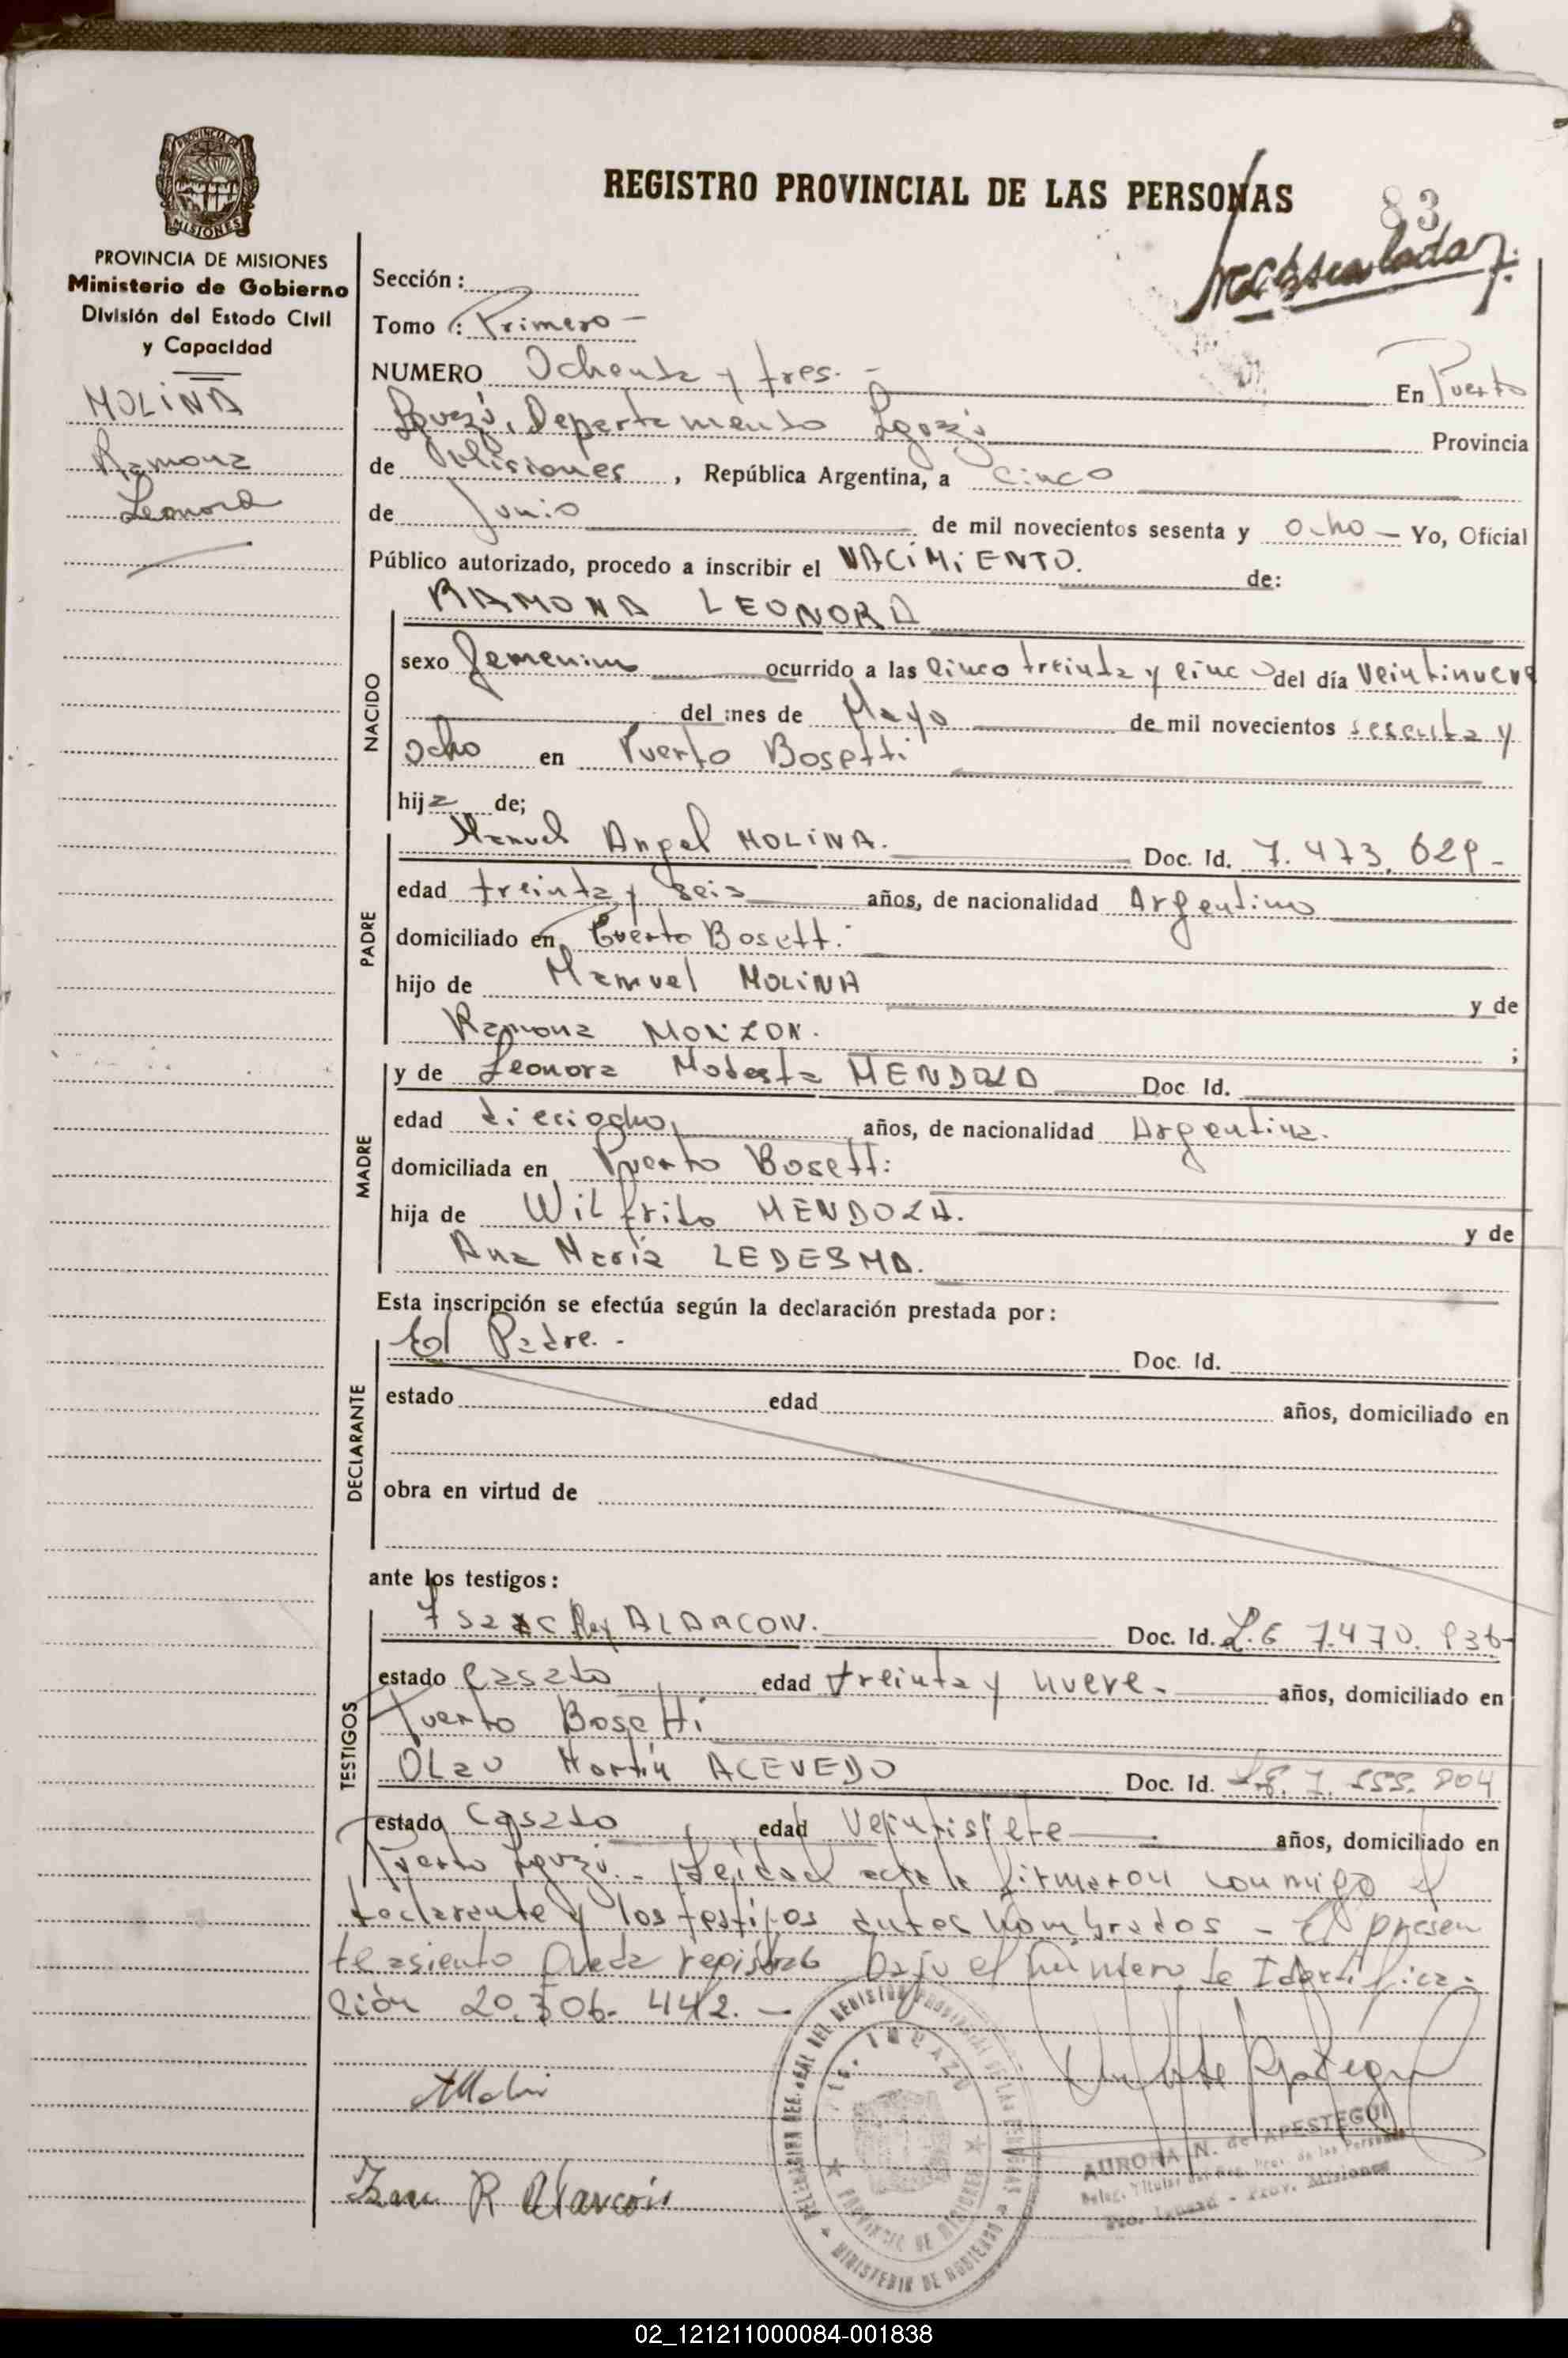 PROVINCIA DE
MISIONES
PROVINCIA DE MISIONES
Ministerio de Gobierno
División del Estado Civil
y Capacidad
MOLINA
Ramona
Leonora
REGISTRO PROVINCIAL DE LAS PERSONAS
83
Sección :
Tomo : Primero -
NUMERO Ochenta y tres. - En Puerto
Iguazú, Departamento Iguazú Provincia
de Misiones , República Argentina, a cinco
de Junio de mil novecientos sesenta y ocho - Yo, Oficial
Público autorizado, procedo a inscribir el NACIMIENTO. de:
RAMONA LEONORA
NACIDO
sexo femenino ocurrido a las cinco treinta y cinco del día veintinueve
del mes de Mayo de mil novecientos sesenta y
ocho en Puerto Bosetti
hija de;
PADRE
Manuel Angel MOLINA. Doc. Id. 7.473.629-
edad treinta y seis años, de nacionalidad Argentino
domiciliado en Puerto Bosetti
hijo de Manuel MOLINA y de
Ramona MONZON. ;
MADRE
y de Leonora Modesta MENDOZA Doc Id.
edad dieciocho años, de nacionalidad Argentina.
domiciliada en Puerto Bosetti
hija de Wilfrido MENDOZA. y de
Ana María LEDESMA.
Esta inscripción se efectúa según la declaración prestada por:
DECLARANTE
El Padre. - Doc. Id.
estado edad años, domiciliado en
obra en virtud de
ante los testigos:
TESTIGOS
Isaac Rey ALARCON. Doc. Id. L.E 7.470.936-
estado casado edad treinta y nueve- años, domiciliado en
Puerto Bosetti
Olao Martín ACEVEDO Doc. Id. 7.555.804
estado casado edad veintisiete años, domiciliado en
Puerto Iguazú.- Leída el acta la firmaron conmigo el
declarante y los testigos antes nombrados - El presen
te asiento queda registrado bajo el número de Identifica-
ción 20.306.442. -
Isaac R Alarcón
DEL REGISTRO PROVINCIAL DE LAS PERSONAS
IGUAZU
PROVINCIA DE MISIONES
MINISTERIO DE GOBIERNO
AURORA N. de APESTEGUI
Deleg. Titular del Reg. Prov. de las Personas
Pto. Iguazú - Prov. Misiones
02_121211000084-001838